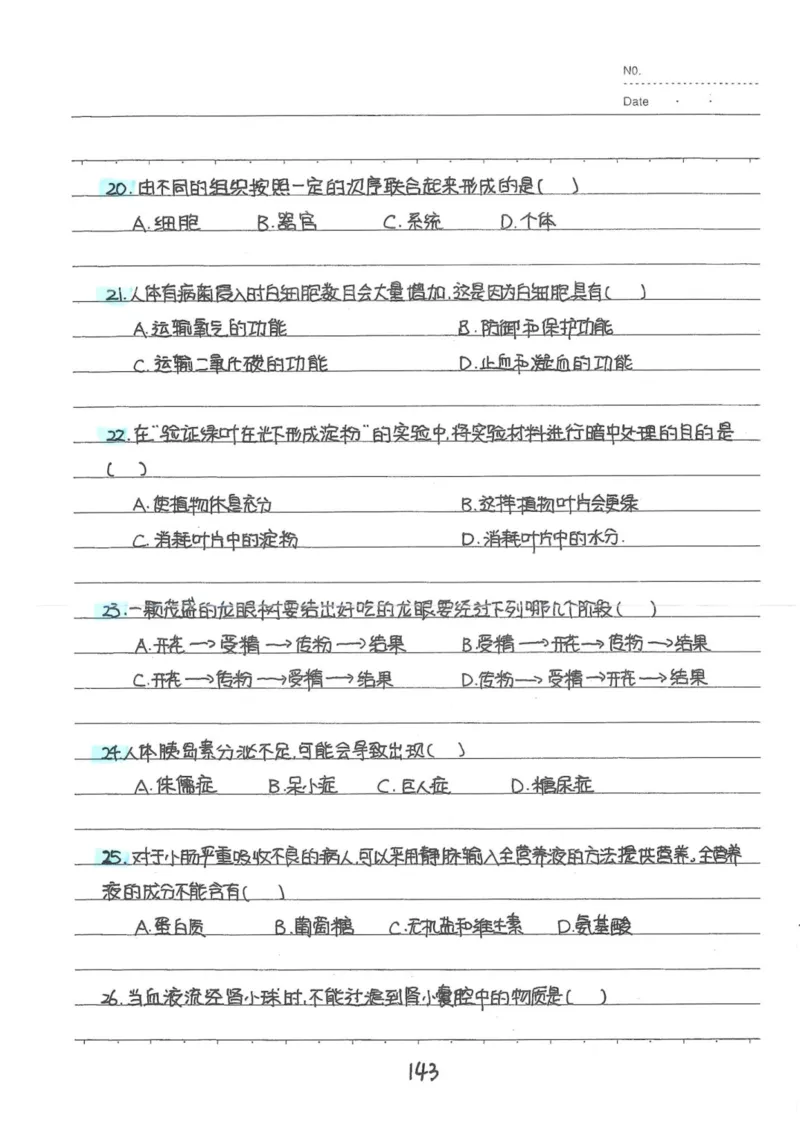 NO.
Date · ·
20.由不同的组织按照一定的次序联合起来形成的是( )
A.细胞 B.器官 C.系统 D.个体
21.人体有病菌侵入时白细胞数目会大量增加,这是因为白细胞具有( )
A.运输氧气的功能 B.防御和保护功能
C.运输二氧化碳的功能 D.止血和凝血的功能
22.在“验证绿叶在光下形成淀粉”的实验中,将实验材料进行暗中处理的目的是
( )
A.使植物休息充分 B.这样植物叶片会更绿
C.消耗叶片中的淀粉 D.消耗叶片中的水分.
23.一颗茂盛的龙眼树要结出好吃的龙眼要经过下列哪几个阶段( )
A.开花→受精→传粉→结果 B.受精→开花→传粉→结果
C.开花→传粉→受精→结果 D.传粉→受精→开花→结果
24.人体胰岛素分泌不足,可能会导致出现( )
A.侏儒症 B.呆小症 C.巨人症 D.糖尿症
25.对于小肠严重吸收不良的病人,可以采用静脉输入全营养液的方法提供营养。全营养
液的成分不能含有( )
A.蛋白质 B.葡萄糖 C.无机盐和维生素 D.氨基酸
26.当血液流经肾小球时,不能过滤到肾小囊腔中的物质是( )
143